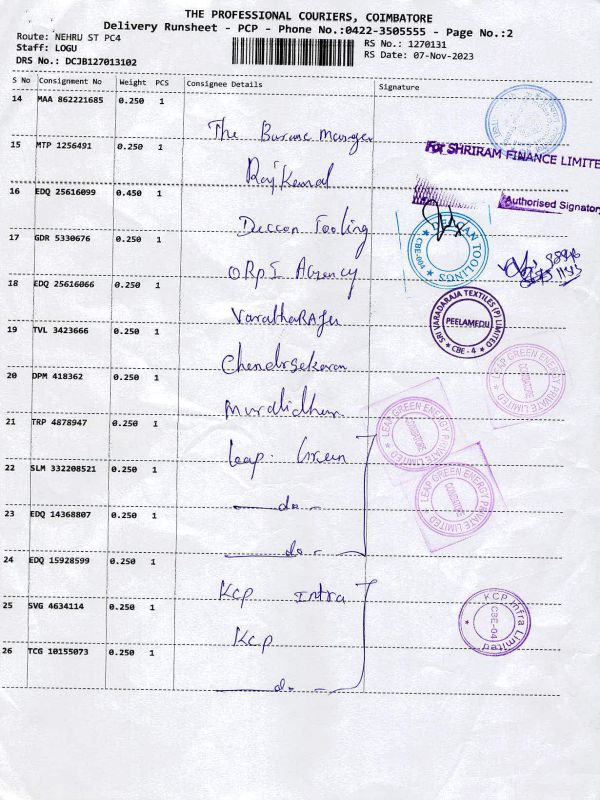 THE PROFESSIONAL COURIERS, COIMBATORE
Delivery Runsheet - PCP - Phone No.:0422-3505555 - Page No.:2
Route: NEHRU ST PC4
Staff: LOGU
DRS No.: DCJB127013102
RS No.: 1270131
RS Date: 07-Nov-2023
S No Consignment No Weight PCS Consignee Details Signature
14 MAA 862221685 0.250 1
The Manager
15 MTP 1256491 0.250 1
For SHRIRAM FINANCE LIMITE
Raj Kamal
16 EDQ 25616099 0.450 1
Authorised Signatory
Deccan Tooling
17 GDR 5330676 0.250 1
DECCAN TOOLINGS
Agency
18 EDQ 25616066 0.250 1
VarathaRAju
SRI VARADARAJA TEXTILES (P) LIMITED
PEELAMEDU
CBE - 4
19 TVL 3423666 0.250 1
Chandrsekaran
20 DPM 418362 0.250 1
LEAP GREEN ENERGY PRIVATE LIMITED
COIMBATORE
Muralidhan
21 TRP 4878947 0.250 1
LEAP GREEN ENERGY PRIVATE LIMITED
COIMBATORE
Leap Green
22 SLM 332208521 0.250 1
LEAP GREEN ENERGY PRIVATE LIMITED
COIMBATORE
do
23 EDQ 14368807 0.250 1
do
24 EDQ 15928599 0.250 1
KCP Infra
25 SVG 4634114 0.250 1
KCP Infra Limited
CBE-04
KCP
26 TCG 10155073 0.250 1
do